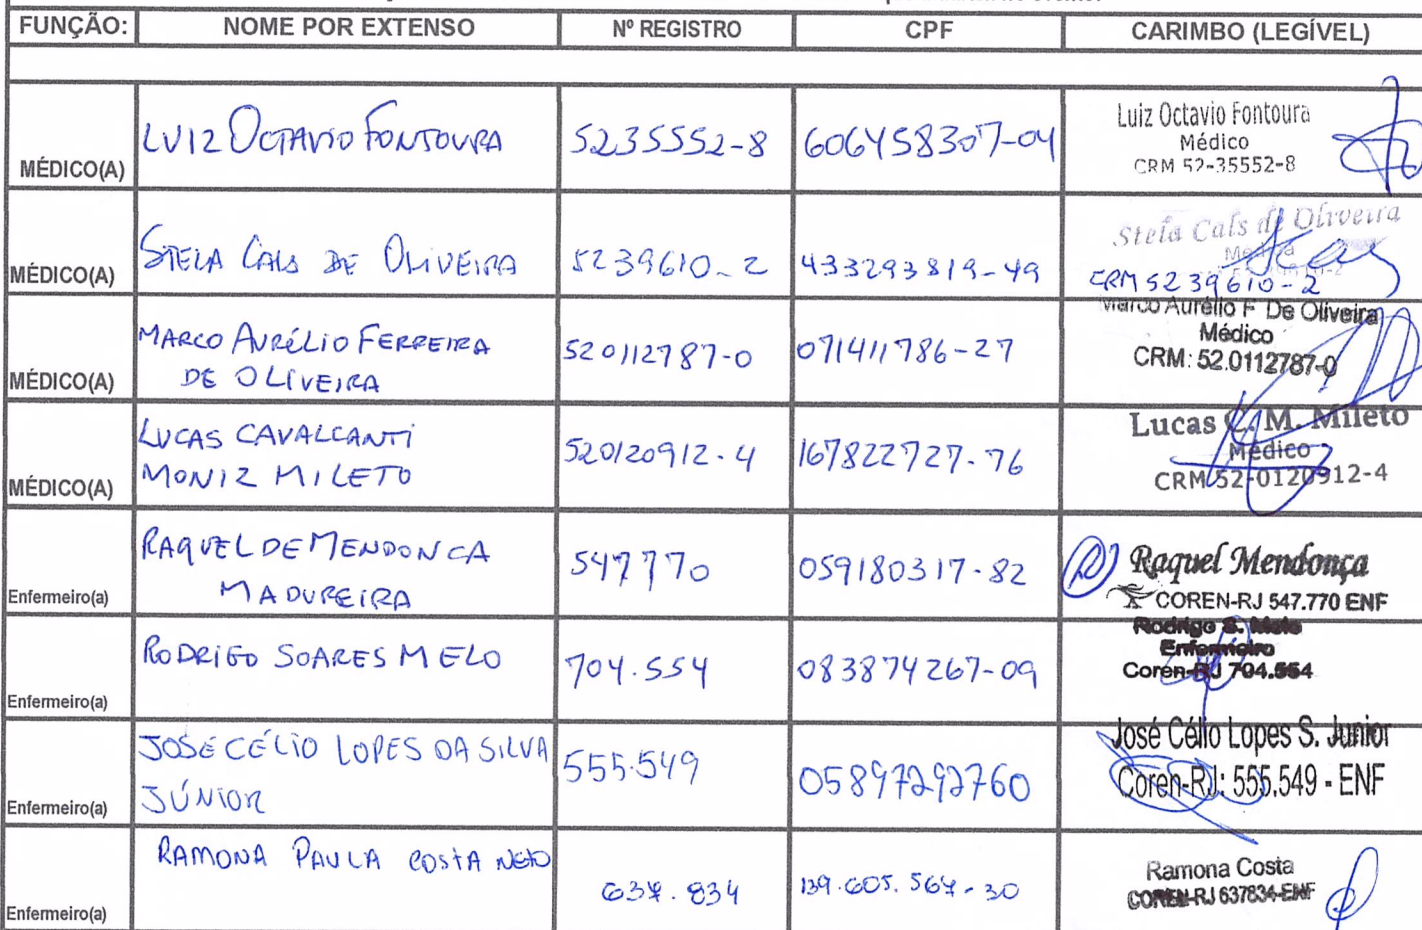 FUNÇÃO: NOME POR EXTENSO Nº REGISTRO CPF CARIMBO (LEGÍVEL)
MÉDICO(A) LUIZ OCTAVIO FONTOURA 5235552-8 606458307-04
Luiz Octavio Fontoura
Médico
CRM 52-35552-8
MÉDICO(A) STELA CALS DE OLIVEIRA 5239610-2 433293819-49
Stela Cals de Oliveira
Médica
CRM 5239610-2
MÉDICO(A) MARCO AURÉLIO FERREIRA
DE OLIVEIRA 520112787-0 071411786-27
Marco Aurélio F De Oliveira
Médico
CRM: 52.0112787-0
MÉDICO(A) LUCAS CAVALCANTI
MONIZ MILETO 520120912-4 167822727-76
Lucas C. M. Mileto
Médico
CRM 52-0120912-4
Enfermeiro(a) RAQUEL DE MENDONCA
MADUREIRA 547770 059180317-82
Raquel Mendonça
COREN-RJ 547.770 ENF
Enfermeiro(a) RODRIGO SOARES MELO 704.554 083874267-09
Rodrigo S. Melo
Enfermeiro
Coren-RJ 704.554
Enfermeiro(a) JOSÉ CÉLIO LOPES DA SILVA
JÚNIOR 555.549 05897292760
José Célio Lopes S. Junior
Coren-RJ: 555.549 - ENF
Enfermeiro(a) RAMONA PAULA COSTA NETO 637.834 139.605.567-30
Ramona Costa
COREN-RJ 637834-ENF